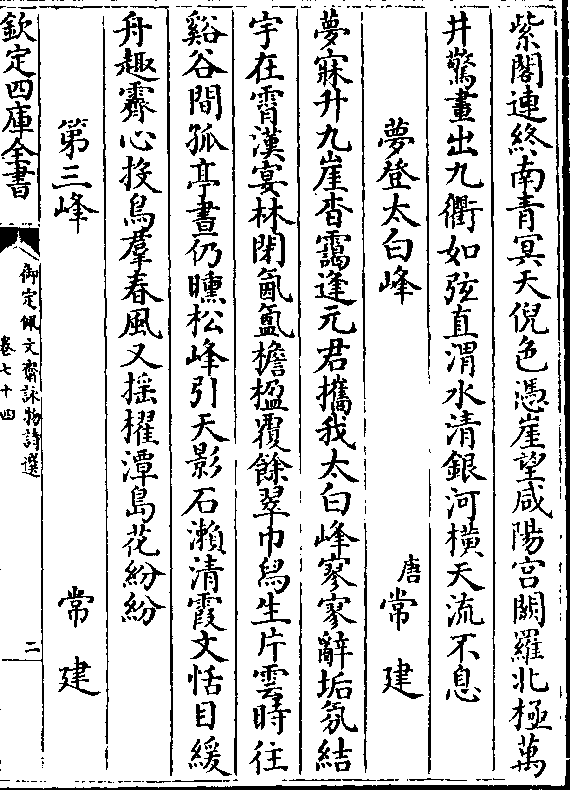 紫閣連終南青冥天倪色憑崖望咸陽宮闕羅北極萬
井驚畫出九衢如弦直渭水清銀河橫天流不息
夢登太白峰　唐常建
夢寐升九崖杳靄逢元君攜我太白峰寥寥辭垢氛結
宇在霄漢宴林閉氤氳檐楹覆餘翠巾舄生片雲時往
谿谷間孤亭晝仍曛松峰引天影石瀨清霞文恬目緩
舟趣霽心投鳥羣春風又搖櫂潭島花紛紛
第三峰　常建
欽定四庫全書
御定佩文齋詠物詩選
卷七十四
二